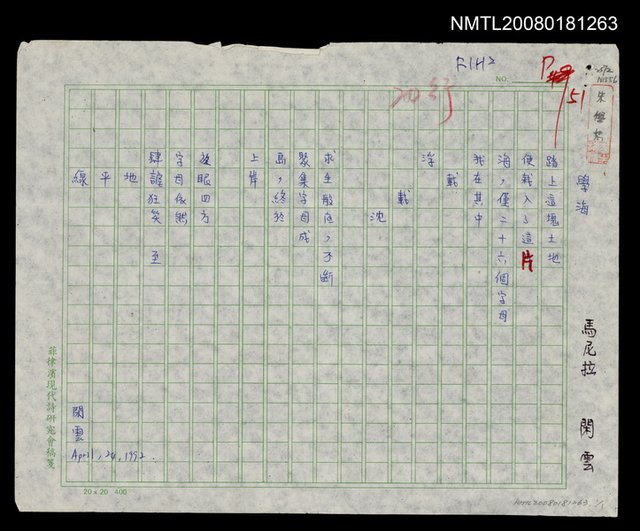 NMTL20080181263
F1H2
NO.
P
51
四行
學海
馬尼拉 閑雲
踏上這塊土地
便栽入了這片
海，僅二十六個字母
我在其中
浮
載
載
沈
求生般底，不斷
聚集字母成
島，終於
上岸
放眼四方
字母依然
肆謔狂笑 至
地
平
線
閑雲
April, 24, 1992.
菲律濱現代詩研究會稿箋
20 x 20 400
NMTL20080181263 1/1